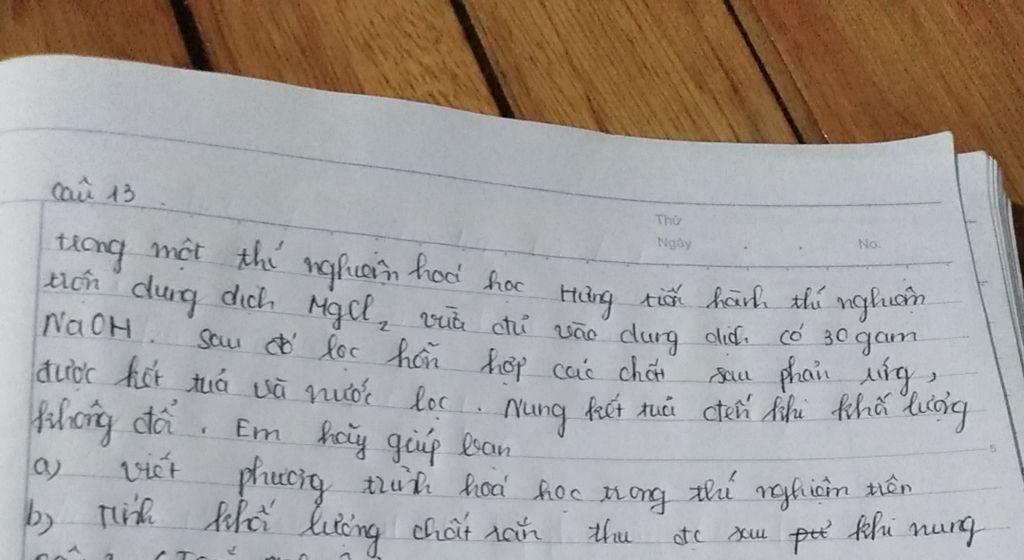 Câu 13.
Thứ
Ngày . . No.
trong một thí nghiệm hoá học Hưng tiến hành thí nghiệm
trộn dung dịch MgCl₂ vừa đủ vào dung dịch có 30 gam
NaOH. Sau đó lọc hỗn hợp các chất sau phản ứng,
được kết tủa và nước lọc. Nung kết tủa đến khi khối lượng
không đổi. Em hãy giúp bạn
a) viết phương trình hoá học trong thí nghiệm trên
b) Tính khối lượng chất rắn thu đc sau khi nung